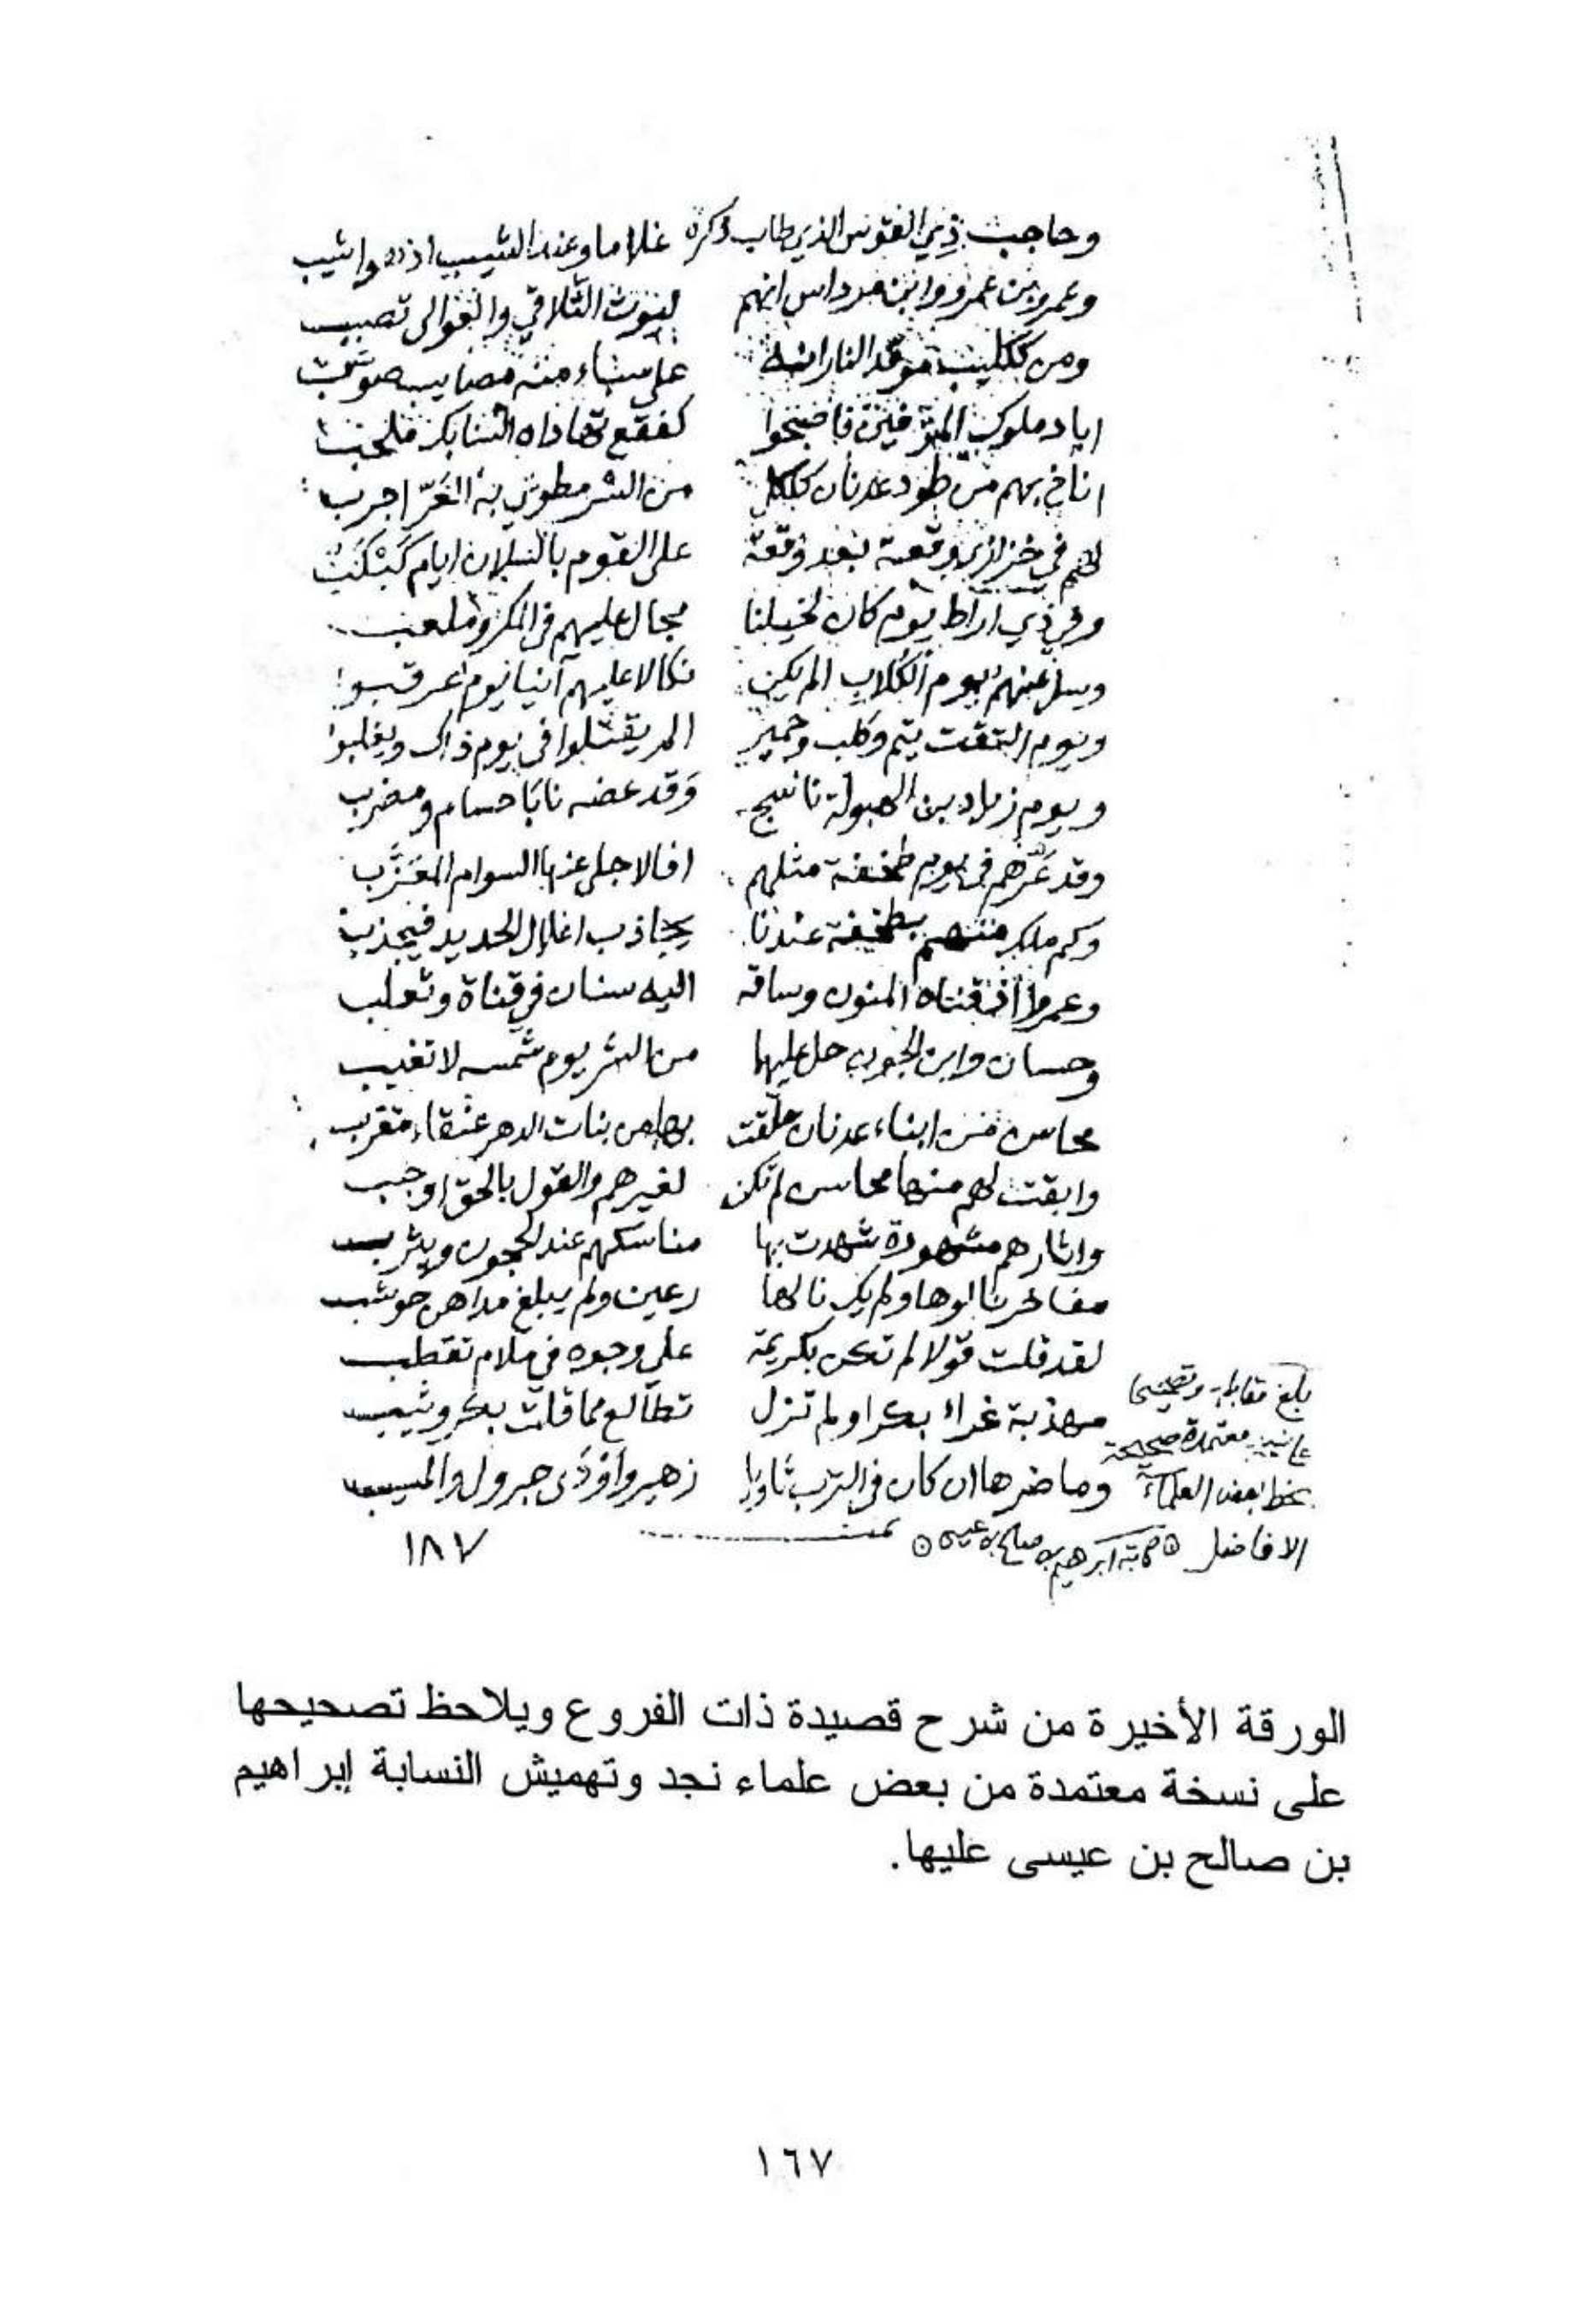 وحاجب ذي القوس الذي طاب ذكره غلاما وعند الشيب اذ هو اشيب
وعمرو بن عمرو وابن مرداس انهم ليوث التلاقي والعوالي تصبب
ومن ككليب موقد النار انه على سباء منه مصايب صوّبت
اباد ملوك المترفين فاصبحوا كفقع تهاداه السنابك ملحب
اناخ بهم من طود عدنان كلكل من الشر مطوي به الغرّ اجرب
لهم في خزازي وقعة بعد وقعة على القوم بالسلان ايام كبكبت
وفي ذي اراط يوم كان لخيلنا مجال عليهم في المكر وملعب
وسل عنهم يوم الكلاب الم يكن نكالا عليهم آنيا يوم عرقبوا
ويوم التقت تيم وكلب وحمير الم يقتلوا في يوم ذاك ويغلبوا
ويوم زياد بن الهبولة وقد عضه نابا حسام ومضرب
وقد غرّهم في يوم طخفة مثلهم افالا جلى عنها السوام المعزّب
وكم ملك منهم بطخفة عندنا يجاذب اغلال الحديد فيجذب
وعمرا اذقناه المنون وساقه اليه سنان في قناة وثعلب
وحسان وابن الجون حل عليهما من الشر يوم شمسه لا تغيب
محاسن من ابناء عدنان حلّقت بها من بنات الدهر عنقاء مغرب
وابقت لهم منها محاسن لم تكن لغيرهم والقول بالحق اوجب
واثارهم مشهودة شهدت بها مناسكهم عند الحجون ويثرب
مفاخر نالوها ولم يك نالها رعين ولم يبلغ مداهن حوشب
لقد قلت قولا لم تكن بكريمة على وجوه في ملام تقطب
مهذبة غراء بكرا ولم تزل تطالع مما قلت بكر وثيب
وما ضرها ان كان في الترب ثاويا زهير واودى جرول والمسيب
تمت
بلغ مقابلة وتصحيحا
على نسخة معتمدة صحيحة
بخط بعض العلماء
الافاضل كاتبه ابراهيم بن صالح بن عيسى
١٨٧
الورقة الأخيرة من شرح قصيدة ذات الفروع ويلاحظ تصحيحها
على نسخة معتمدة من بعض علماء نجد وتهميش النسابة إبراهيم
بن صالح بن عيسى عليها.
١٦٧